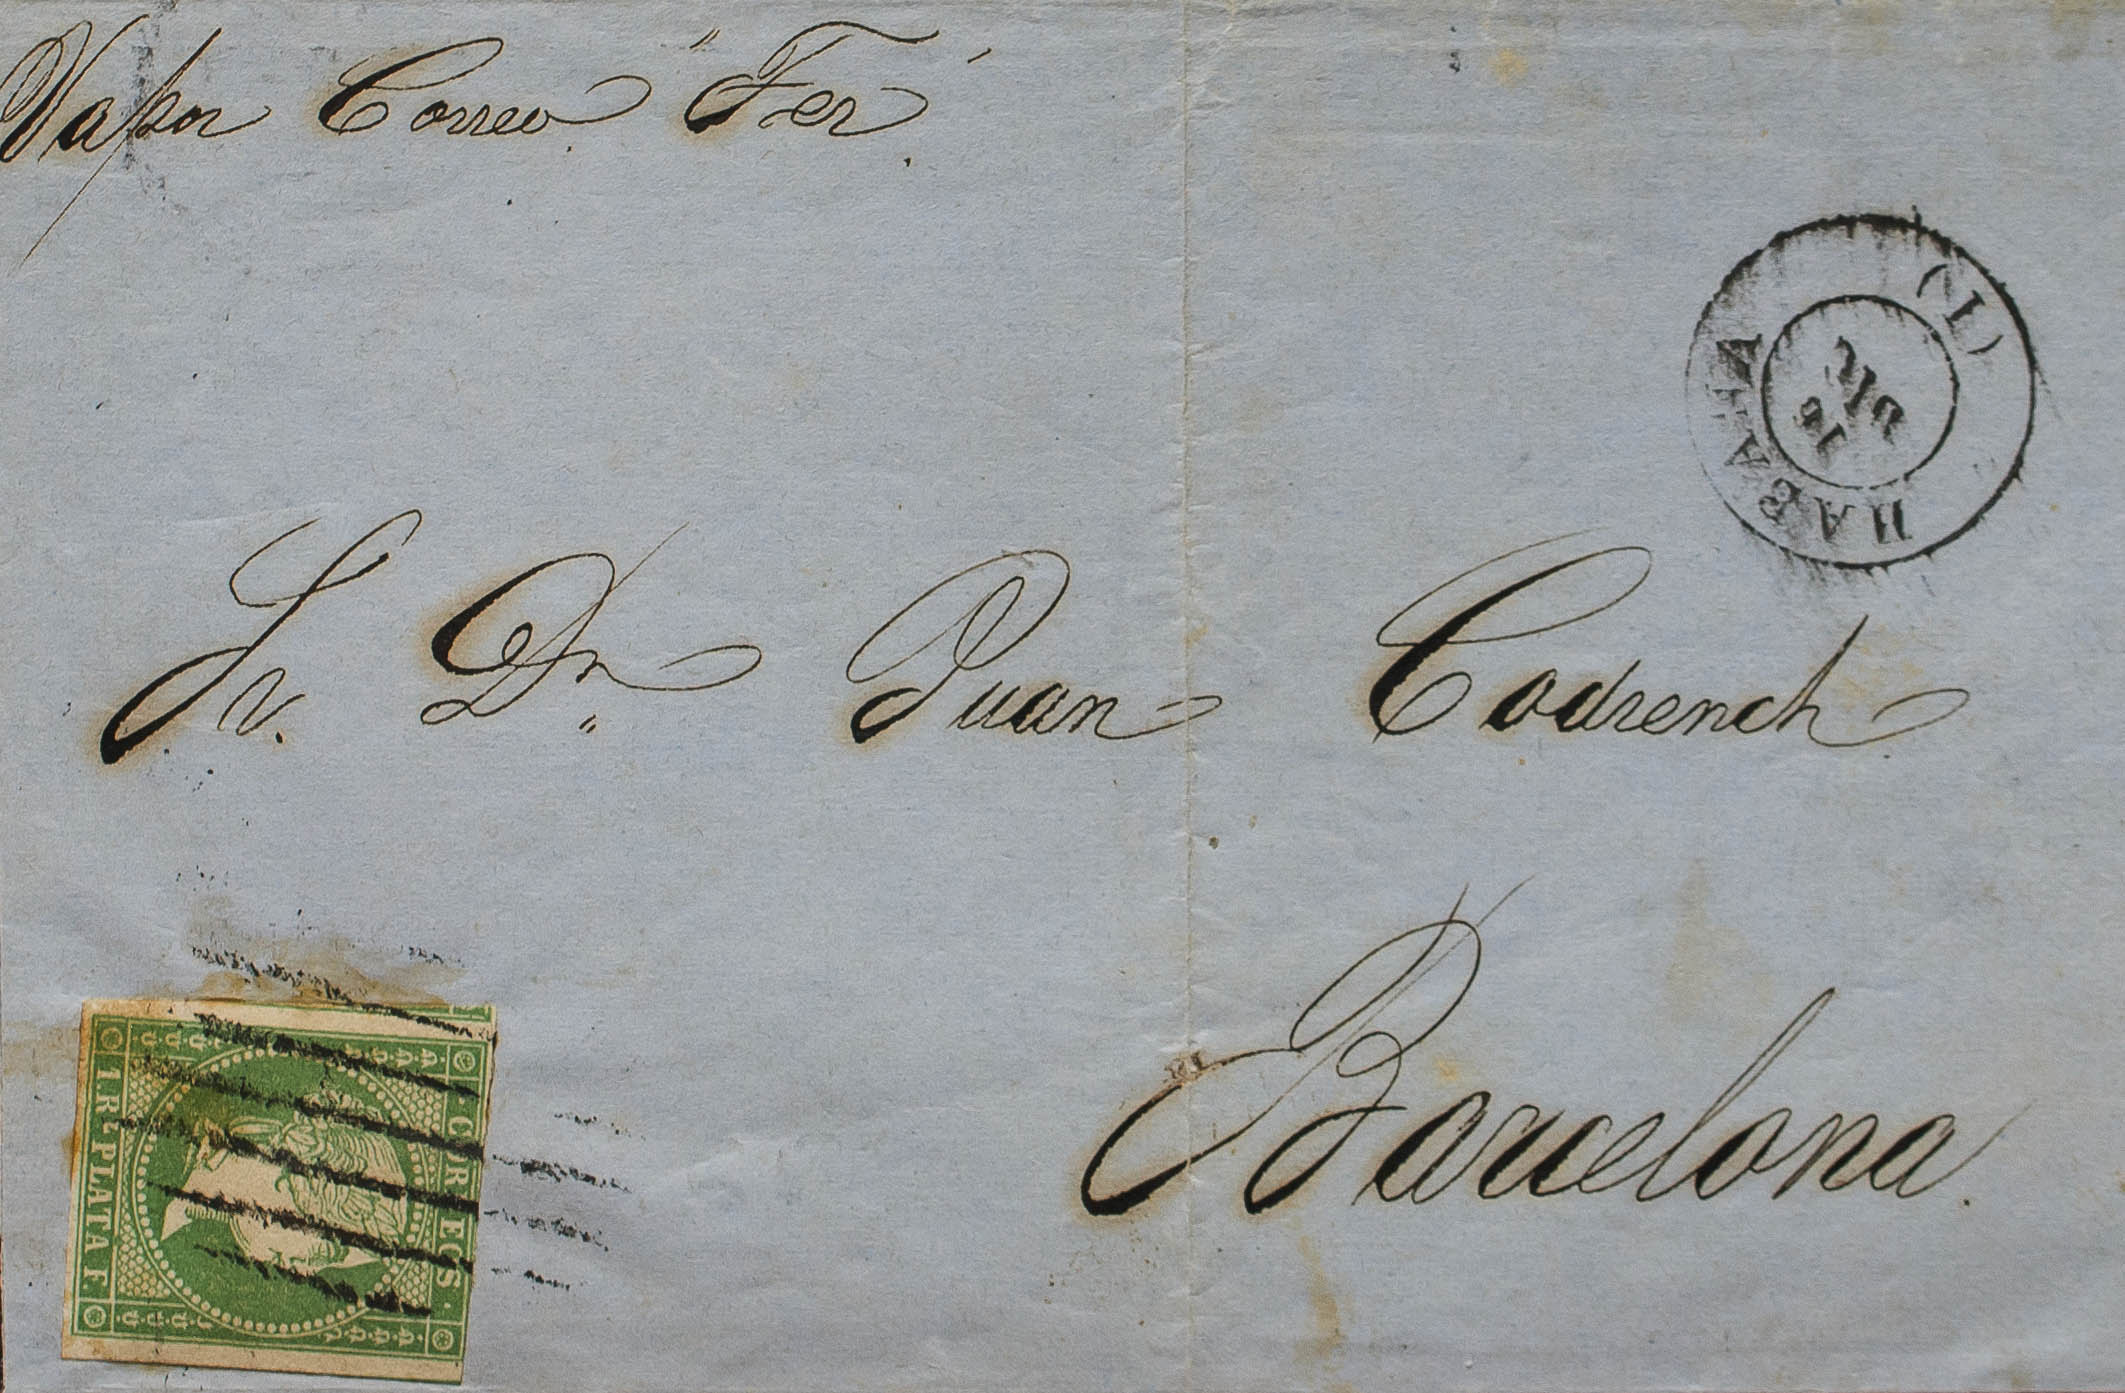 Vapor Correo "Fer"
HABANA (1)
15 DIC
Sr. Dn Juan Codrench
Barcelona.
CORREOS.
1 Rl PLATA F.